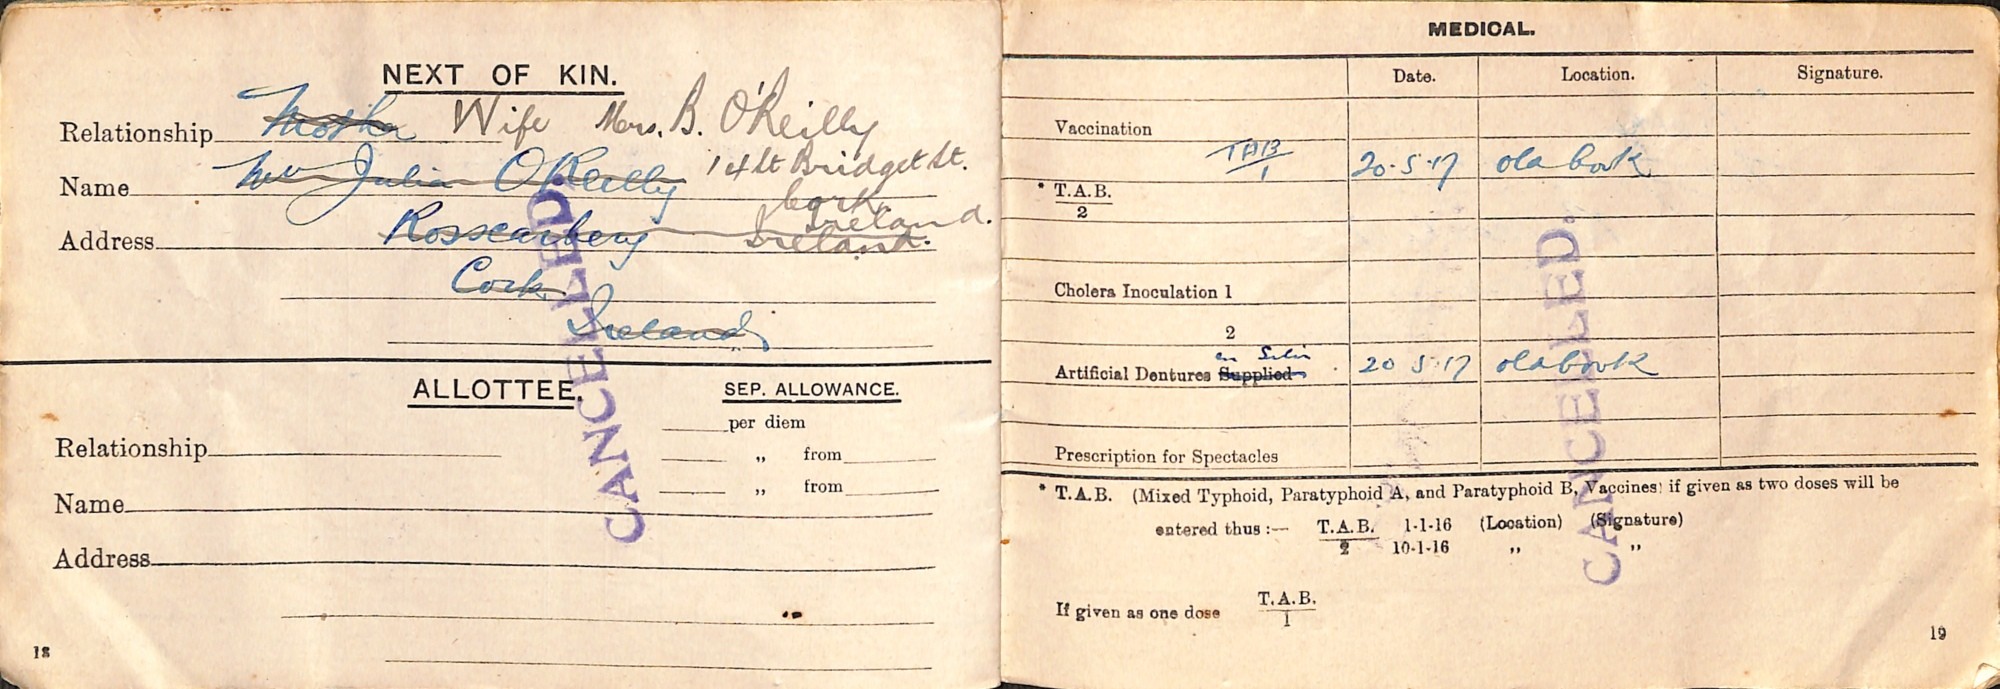 NEXT OF KIN.
Relationship Mother Wife Mrs. B. O'Reilly
Name Mrs Julia O'Reilly 14 Lt Bridget St.
Cork
Ireland.
Address Rosscarbery Ireland.
Cork
Ireland
CANCELLED.
ALLOTTEE.
SEP. ALLOWANCE.
per diem
Relationship
„ from
„ from
Name
Address
18
MEDICAL.
Date. Location. Signature.
Vaccination
TAB/1 20·5·17 old book
* T.A.B.
2
Cholera Inoculation 1
2
Artificial Dentures Supplied 20 5 17 old book
Prescription for Spectacles
CANCELLED.
* T.A.B. (Mixed Typhoid, Paratyphoid A, and Paratyphoid B, Vaccines) if given as two doses will be
entered thus :— T.A.B. 1-1-16 (Location) (Signature)
2 10-1-16 „ „
If given as one dose T.A.B.
1
19